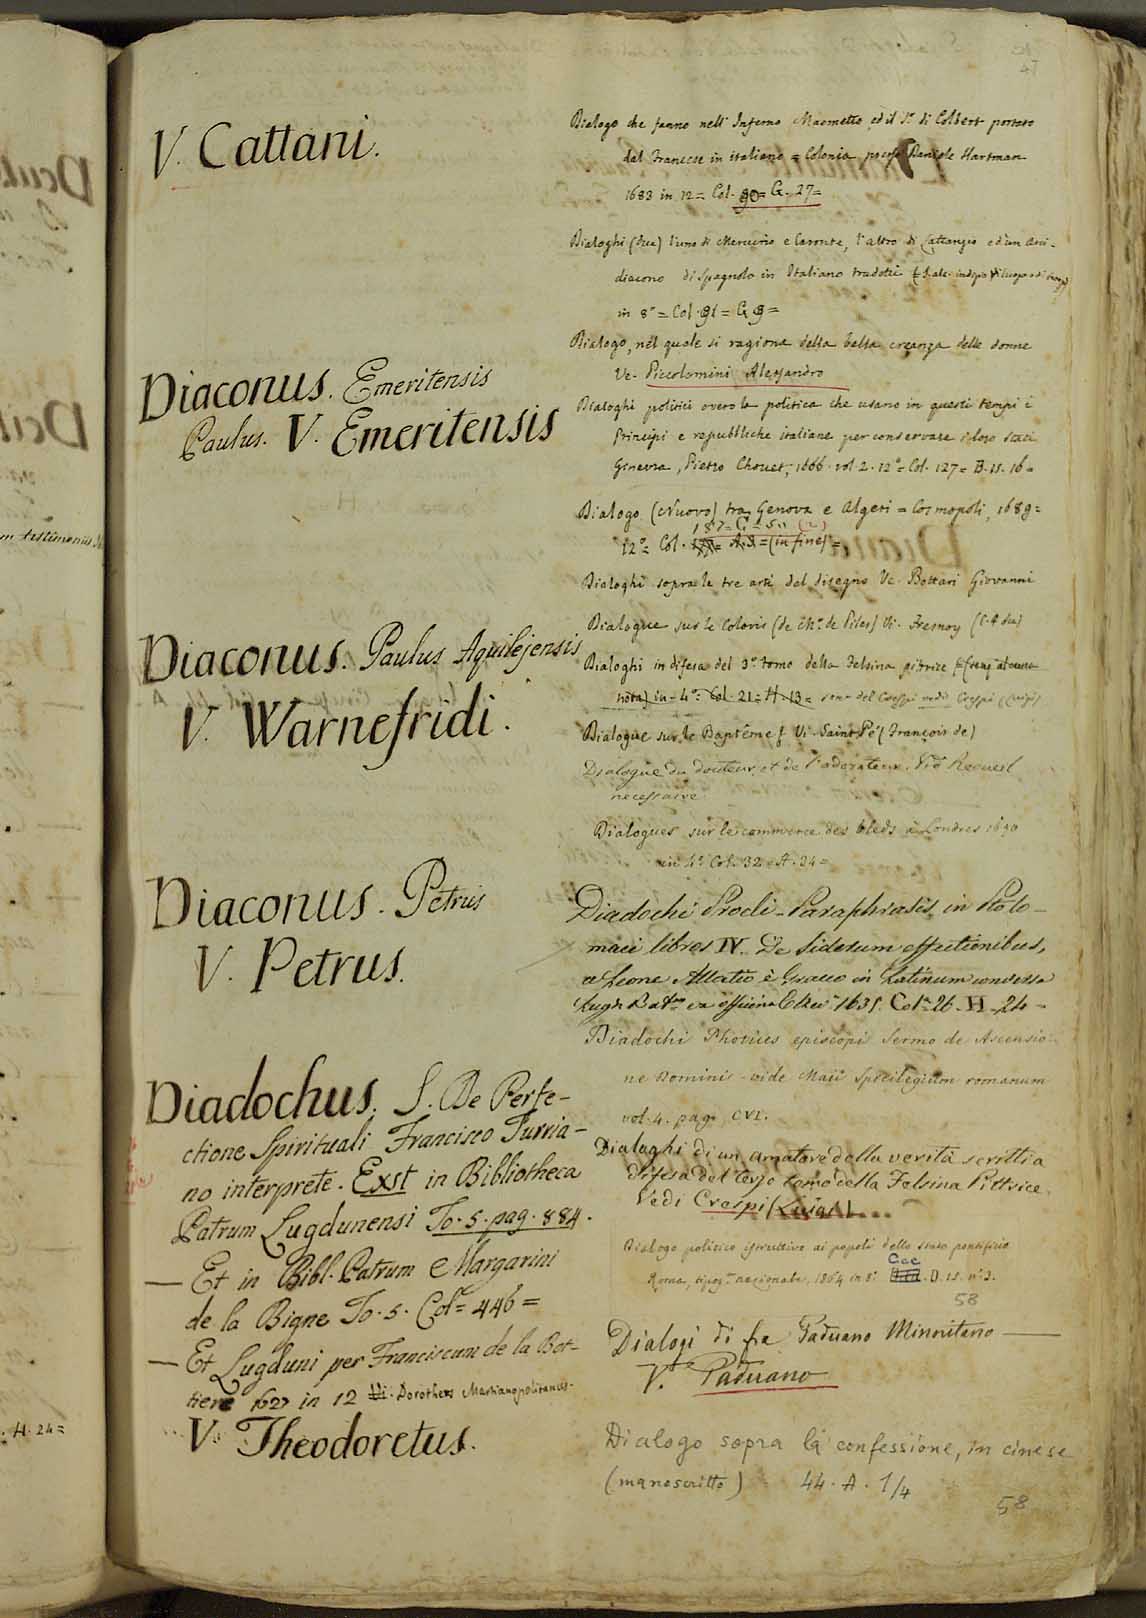 V. Cattani.
Diaconus. Emeritensis
Paulus. V. Emeritensis
Diaconus. Paulus Aquilejensis
V. Warnefridi.
Diaconus. Petrus
V. Petrus.
Diadochus. S. De Perfe-
ctione Spirituali Francisco Turria-
no interprete. Exst in Bibliotheca
Patrum Lugdunensi To. 5. pag. 884.
— Et in Bibl. Patrum Margarini
de la Bigne To. 5. Col.ᵉ 446 =
— Et Lugduni per Franciscum de la Bot-
tiere 1627 in 12 Vi. Dorotheus Martianopolitanus.
V. Theodoretus.
47
Dialogo che fanno nell' Inferno Maometto ed il Sʳ. di Colbert portato
dal Francese in italiano = Colonia presso Daniele Hartman
1683 in 12 = Col. 90 = G. 27 =
Dialoghi (due) l'uno di Mercurio e Caronte, l'altro di Lattanzio e d'un Arci-
diacono di Spagnolo in Italiano tradotti
in 8° = Col. 91 = G. 9 =
Dialogo, nel quale si ragiona della bella creanza delle donne
Ve. Piccolomini Alessandro
Dialoghi politici overo la politica che usano in questi tempi i
Principi e repubbliche italiane per conservare i loro stati
Genevra, Pietro Chouet, 1666. vol. 2. 12° = Col. 127 = B. 15. 16 =
Dialogo (Nuovo) tra Genova e Algeri = Cosmopoli, 1689 =
12° = Col. 187 = G = 50 = (in fine) =
Dialoghi sopra le tre arti del disegno Ve. Bottari Giovanni
Dialogue sur le Coloris (de Mʳ. de Piles) Vi. Fresnoy (C. A du)
Dialoghi in difesa del 3° tomo della Felsina pittrice (senz'alcuna
nota) in 4° Col. 21 = H. 13 = son del Crespi vedi Crespi (Luigi)
Dialogue sur le Baptême Vi. Saint Pé (François de)
Dialogue du douteur et de l'adorateur. Vid Recueil
necessaire
Dialogues sur le commerce des bleds a Londres 1690
in 4° Col. 32 = A. 24 =
Diadochi Procli. Paraphrasis in Ptolo-
maei libros IV. De Siderum effectionibus,
a Leone Allatio è Graeco in Latinum conversa
Lugd. Batᵛᵒʳ ex officina Elzev. 1635. Col. 26 - H - 24 -
Diadochi Photices episcopi Sermo de Ascensio-
ne Domini - vide Maii Spicilegium romanum
vol. 4. pag. CVI.
Dialoghi di un amatore della verità scritti a
difesa del terzo tomo della Felsina Pittrice.
Vedi Crespi (Luigi)
Dialogo politico istruttivo ai popoli dello stato pontificio
Roma, tipogᵃ nazionale, 1864 in 8° Ccc. D. 15. n° 3.
58
Dialogi di fra Paduano Minoritano —
V. Paduano
Dialogo sopra la confessione, in cinese
(manoscritto) 44. A. 1/4
58
m testimonius
. H. 24 =